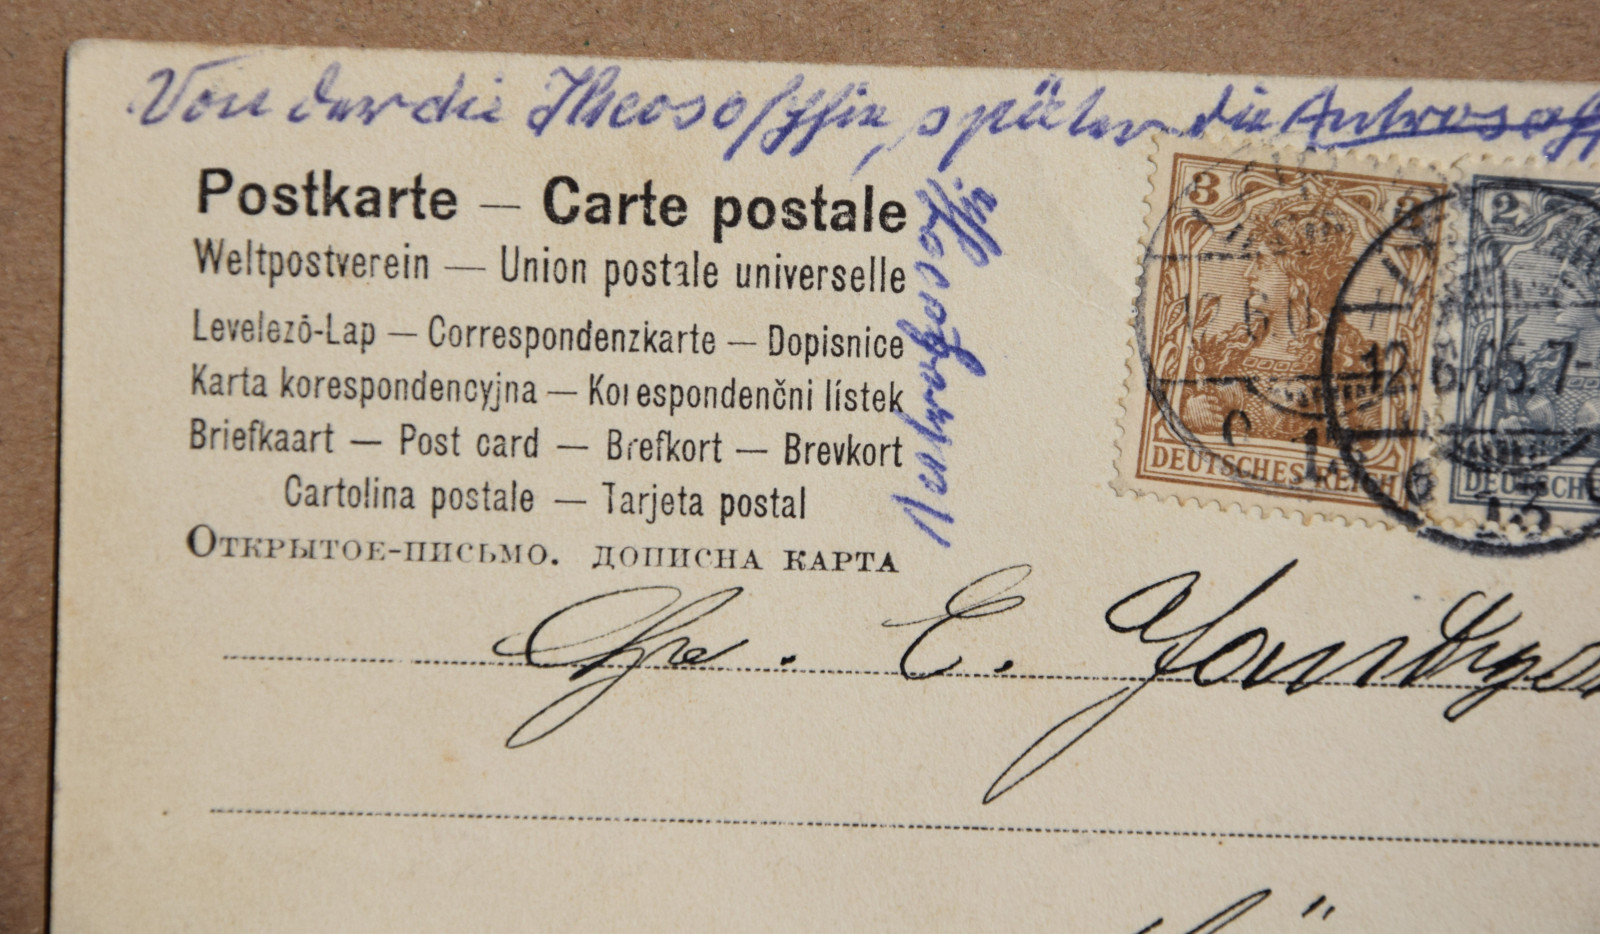 Von der die Theosoffin, später die Antrosoff
Antroposoffin
Postkarte — Carte postale
Weltpostverein — Union postale universelle
Levelező-Lap — Correspondenzkarte — Dopisnice
Karta korespondencyjna — Korespondenčni lístek
Briefkaart — Post card — Brefkort — Brevkort
Cartolina postale — Tarjeta postal
Открытое-письмо. дописна карта
3 3
DEUTSCHES REICH
2
DEUTSCHES
12.6.05.7-
E.